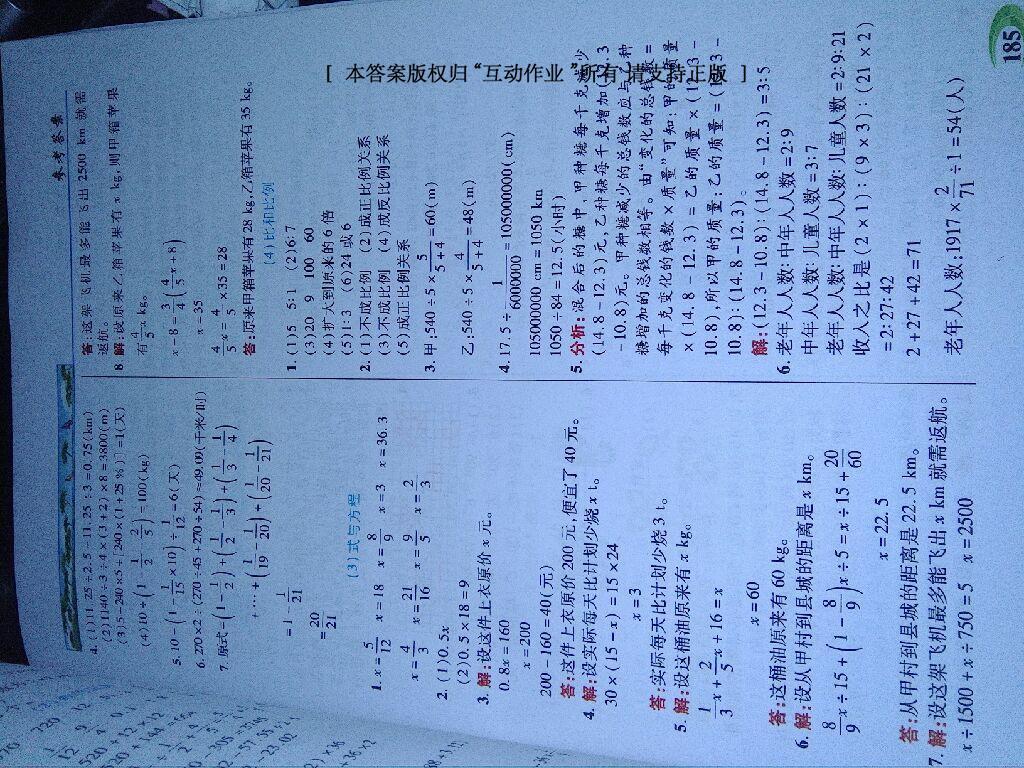 [ 本答案版权归“互动作业”所有,请支持正版 ]
参考答案
4. (1)11.25÷2.5-11.25÷3=0.75(km)
(2)1140÷3÷4×(3+2)×8=3800(m)
(4)10÷(1-1/2-2/5)=100(kg)
5. 10-(1-1/15×10)÷1/12=6(天)
6. 270×2÷(270÷45+270÷54)≈49.09(千米/时)
7. 原式=(1-1/2)+(1/2-1/3)+(1/3-1/4)
+…+(1/19-1/20)+(1/20-1/21)
=1-1/21
=20/21
(3)式与方程
1. x=5/12 x=18 x=8/9 x=3 x=36.3
x=4/3 x=21/16 x=9/5 x=2/3
2. (1)0.5x
(2)0.5×18=9
3. 解:设这件上衣原价x元。
0.8x=160
x=200
200-160=40(元)
答:这件上衣原价200元,便宜了40元。
4. 解:设实际每天比计划少烧x t。
30×(15-x)=15×24
x=3
答:实际每天比计划少烧3 t。
5. 解:设这桶油原来有x kg。
1/3x+2/5x+16=x
x=60
答:这桶油原来有60 kg。
6. 解:设从甲村到县城的距离是x km。
8/9x÷15+(1-8/9)x÷5=x÷15+20/60
x=22.5
答:从甲村到县城的距离是22.5 km。
7. 解:设这架飞机最多能飞出x km就需返航。
x÷1500+x÷750=5 x=2500
答:这架飞机最多能飞出2500 km就需
返航。
8. 解:设原来乙箱苹果有x kg,则甲箱苹果
有4/5x kg。
x-8=3/4(4/5x+8)
x=35
4/5x=4/5×35=28
答:原来甲箱苹果有28 kg,乙箱苹果有35 kg。
(4)比和比例
1. (1)5 5:1 (2)6:7
(3)20 9 100 60
(4)扩大到原来的6倍
(5)1:3 (6)24或6
2. (1)不成比例 (2)成正比例关系
(3)不成比例 (4)成反比例关系
(5)成正比例关系
3. 甲:540÷5×5/(5+4)=60(m)
乙:540÷5×4/(5+4)=48(m)
4. 17.5÷1/6000000=105000000(cm)
105000000 cm=1050 km
1050÷84=12.5(小时)
5. 分析:混合后的糖中,甲种糖每千克减少
(14.8-12.3)元,乙种糖每千克增加(12.3
-10.8)元。甲种糖减少的总钱数应与乙种
糖增加的总钱数相等。由“变化的总钱数=
每千克变化的钱数×质量”可知:甲的质量
×(14.8-12.3)=乙的质量×(12.3-
10.8),所以甲的质量:乙的质量=(12.3-
10.8):(14.8-12.3)。
解:(12.3-10.8):(14.8-12.3)=3:5
6. 老年人人数:中年人人数=2:9
中年人人数:儿童人数=3:7
老年人人数:中年人人数:儿童人数=2:9:21
收入之比是(2×1):(9×3):(21×2)
=2:27:42
2+27+42=71
老年人人数:1917×2/71÷1=54(人)
185